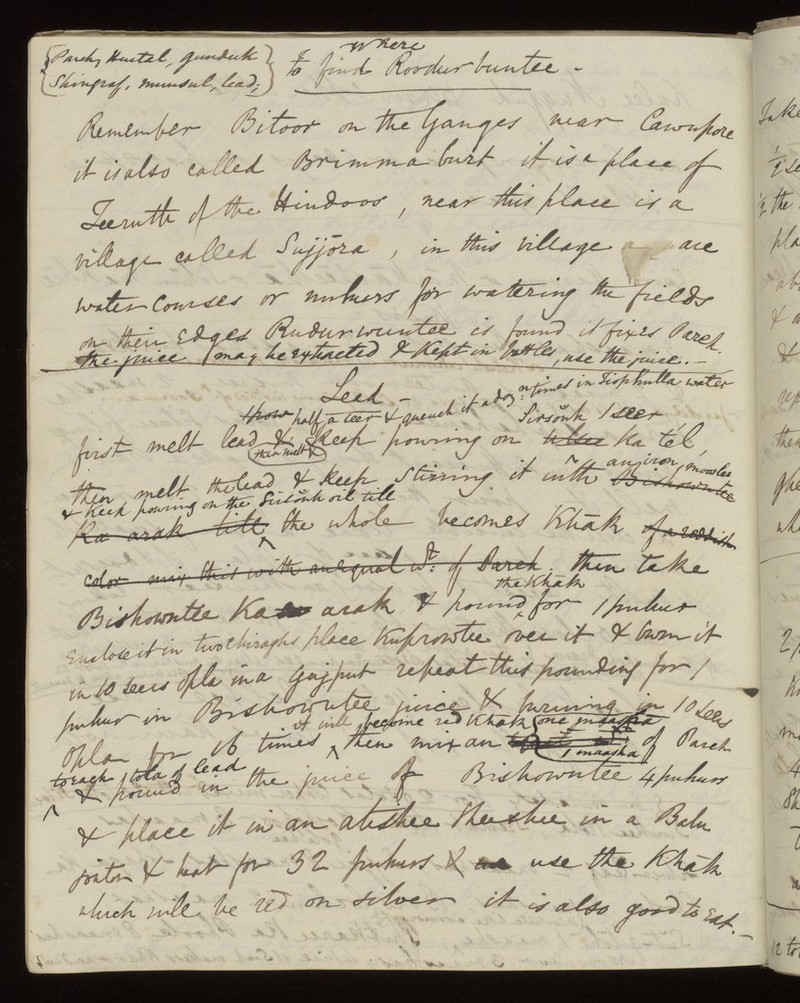 Parch, Hurtal, gunduk
Shingraf, munsul, lead,
where
To find Roodurbuntee -
Remember Bitoor on the Ganges near Cawnpore
it is also called Brimma burt it is a place of
Teeruth of the Hindoos, near this place is a
village called Sujjora, in this village are
water Courses or nuhurs for watering the fields
on their Edges Rudurwuntee is found it fixes Pareh.
the juice may be extracted & Kept in bottles, use the juice. -
Lead -
throw half a seer & quench it a doz. times in Tirphulla water
Sirsonk 1 seer
first melt lead & Keep pouring on Ka tel,
then melt
then melt the lead & Keep stirring it with an iron
& Keep pouring on the Sirsonk oil till
Ka arak till the whole becomes Khak of a reddish
color mix this with an equal wt: of Pareh. then take
the Khak
Bishowntee Ka arak & pound for 1 puhur
Enclose it in two Chiraghs place Kuprowtee over it & burn it
in 10 seers Opla in a Gujput repeat this pounding for 1
puhur in Bishowntee juice & burning in 10 seers
it will become red Khak one maasha
Opla for 16 times, then mix an of Pareh
1 maasha
to each tola of lead
& pound in the juice of Bishowntee 4 puhurs
& place it in an atishee sheeshee in a Balu
jontor & heat for 32 puhurs & use the Khak
which will be red on silver it is also good to Eat. -